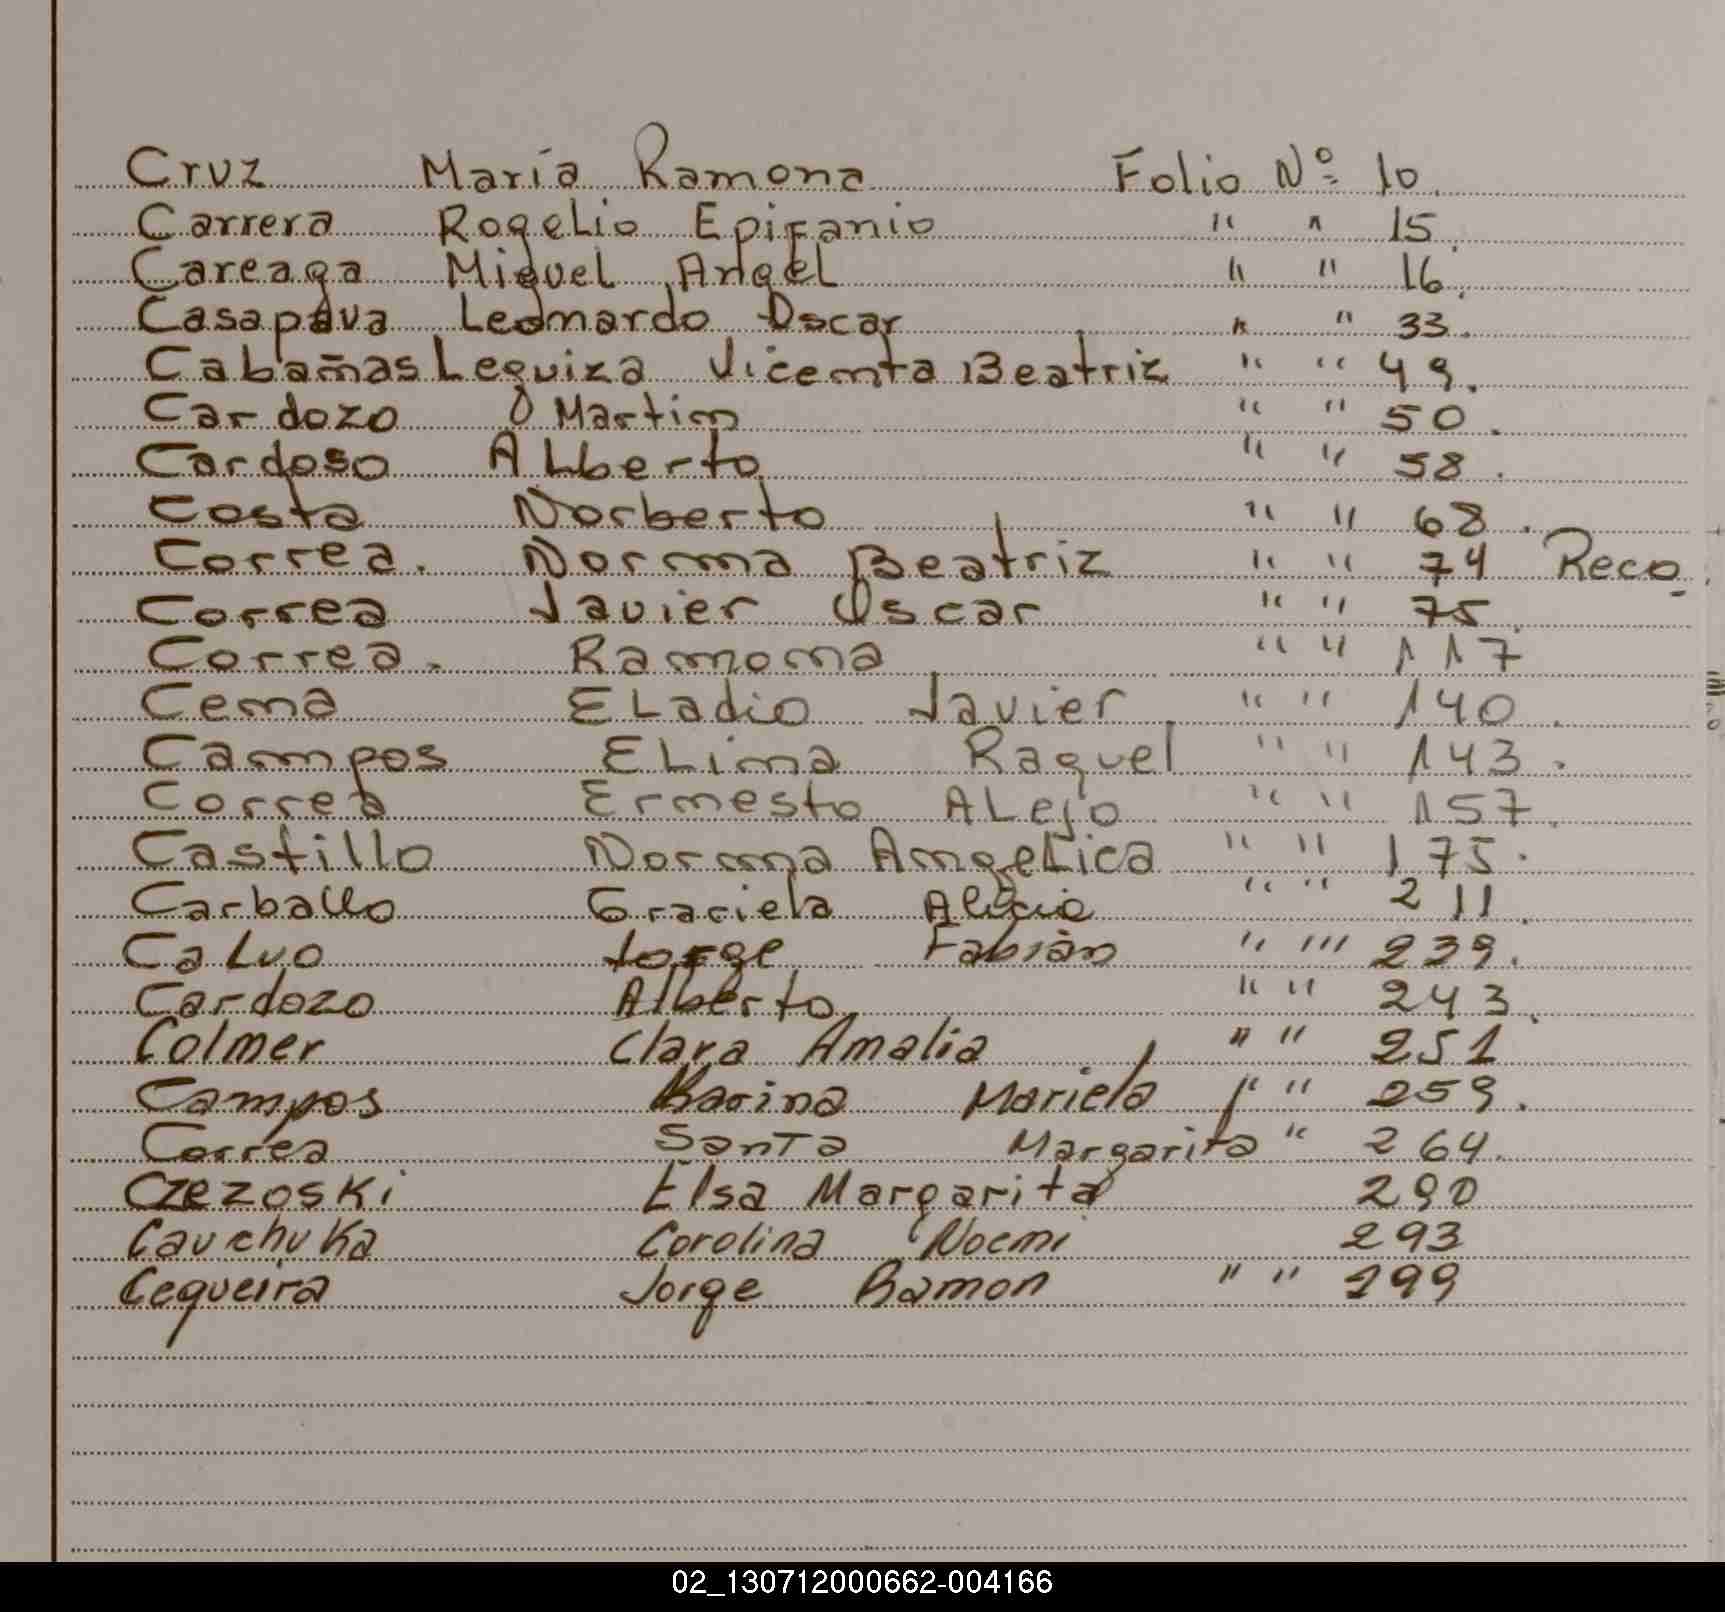 Cruz María Ramona Folio Nº 10.
Carrera Rogelio Epifanio " " 15.
Careaga Miguel Angel " " 16.
Casapava Leonardo Oscar " " 33.
Cabañas Leguiza Vicenta Beatriz " " 49.
Cardozo Martin " " 50.
Cardoso Alberto " " 58.
Costa Norberto " " 68.
Correa. Norma Beatriz " " 74 Reco.
Correa Javier Oscar " " 75.
Correa. Ramona " " 117
Cena Eladio Javier " " 140.
Campos Elina Raquel " " 143.
Correa Ernesto Alejo " " 157.
Castillo Norma Angelica " " 175.
Carballo Graciela Alicia " " 211.
Calvo Jorge Fabián " " 239.
Cardozo Alberto " " 243.
Colmer Clara Amalia " " 251
Campos Karina Mariela " " 259.
Correa Santa Margarita " 264.
Czezoski Elsa Margarita 290
Cauchuka Carolina Noemi 293
Cequeira Jorge Ramon " " 299
02_130712000662-004166